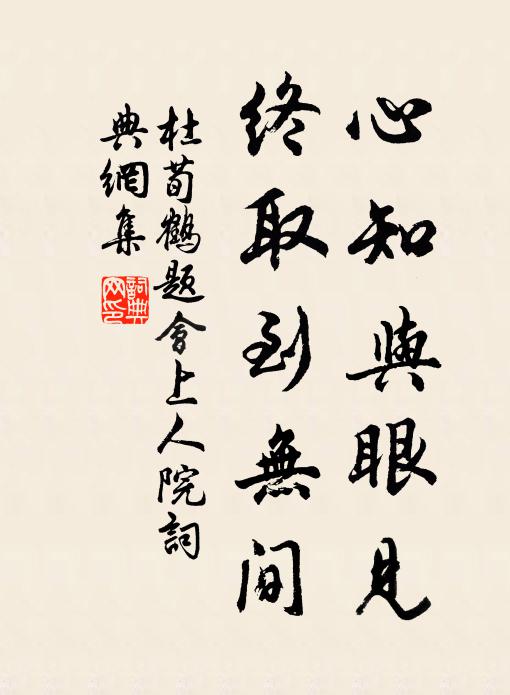 心知與眼見
終取到無間
杜荀鶴題會上人院詞
典網集
詞典
网印